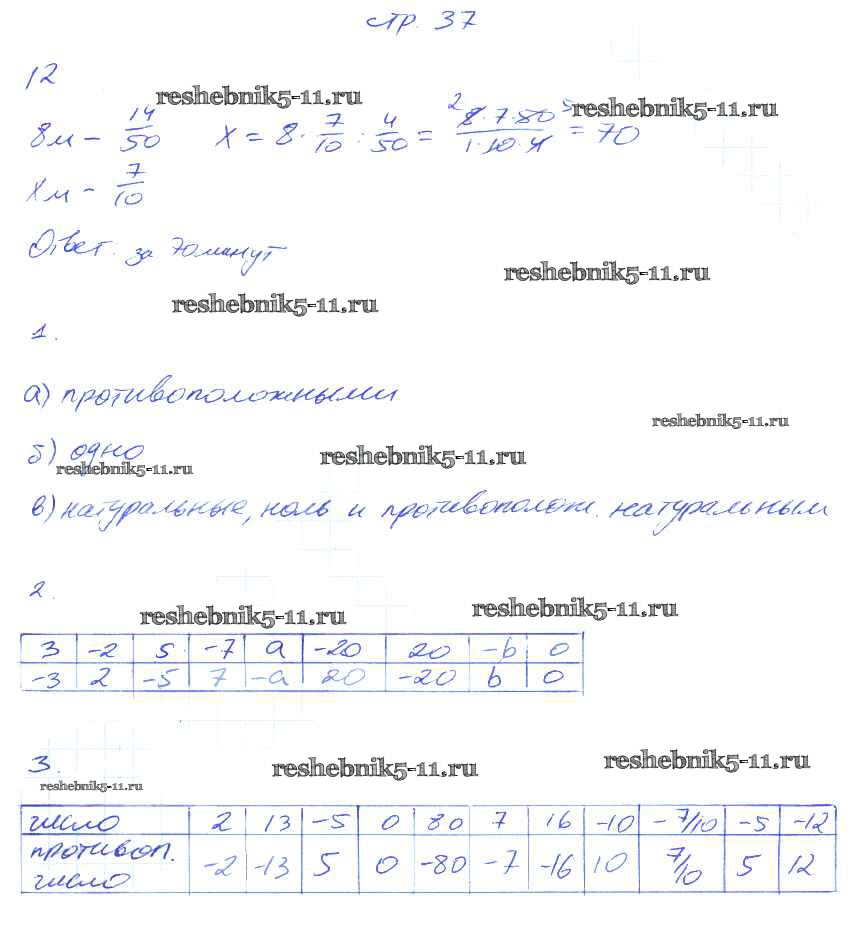 стр. 37
12
reshebnik5-11.ru
reshebnik5-11.ru
8м - 14/50 x = 8 · 7/10 : 4/50 = 8·7·50/1·10·4 = 70
xм - 7/10
Ответ: за 70 минут
reshebnik5-11.ru
reshebnik5-11.ru
1.
а) противоположными
reshebnik5-11.ru
б) одно
reshebnik5-11.ru
reshebnik5-11.ru
в) натуральные, ноль и противополож. натуральным
2.
reshebnik5-11.ru
reshebnik5-11.ru
3 -2 5 -7 a -20 20 -b 0
-3 2 -5 7 -a 20 -20 b 0
3.
reshebnik5-11.ru
reshebnik5-11.ru
reshebnik5-11.ru
число 2 13 -5 0 80 7 16 -10 -7/10 -5 -12
противоп. число -2 -13 5 0 -80 -7 -16 10 7/10 5 12